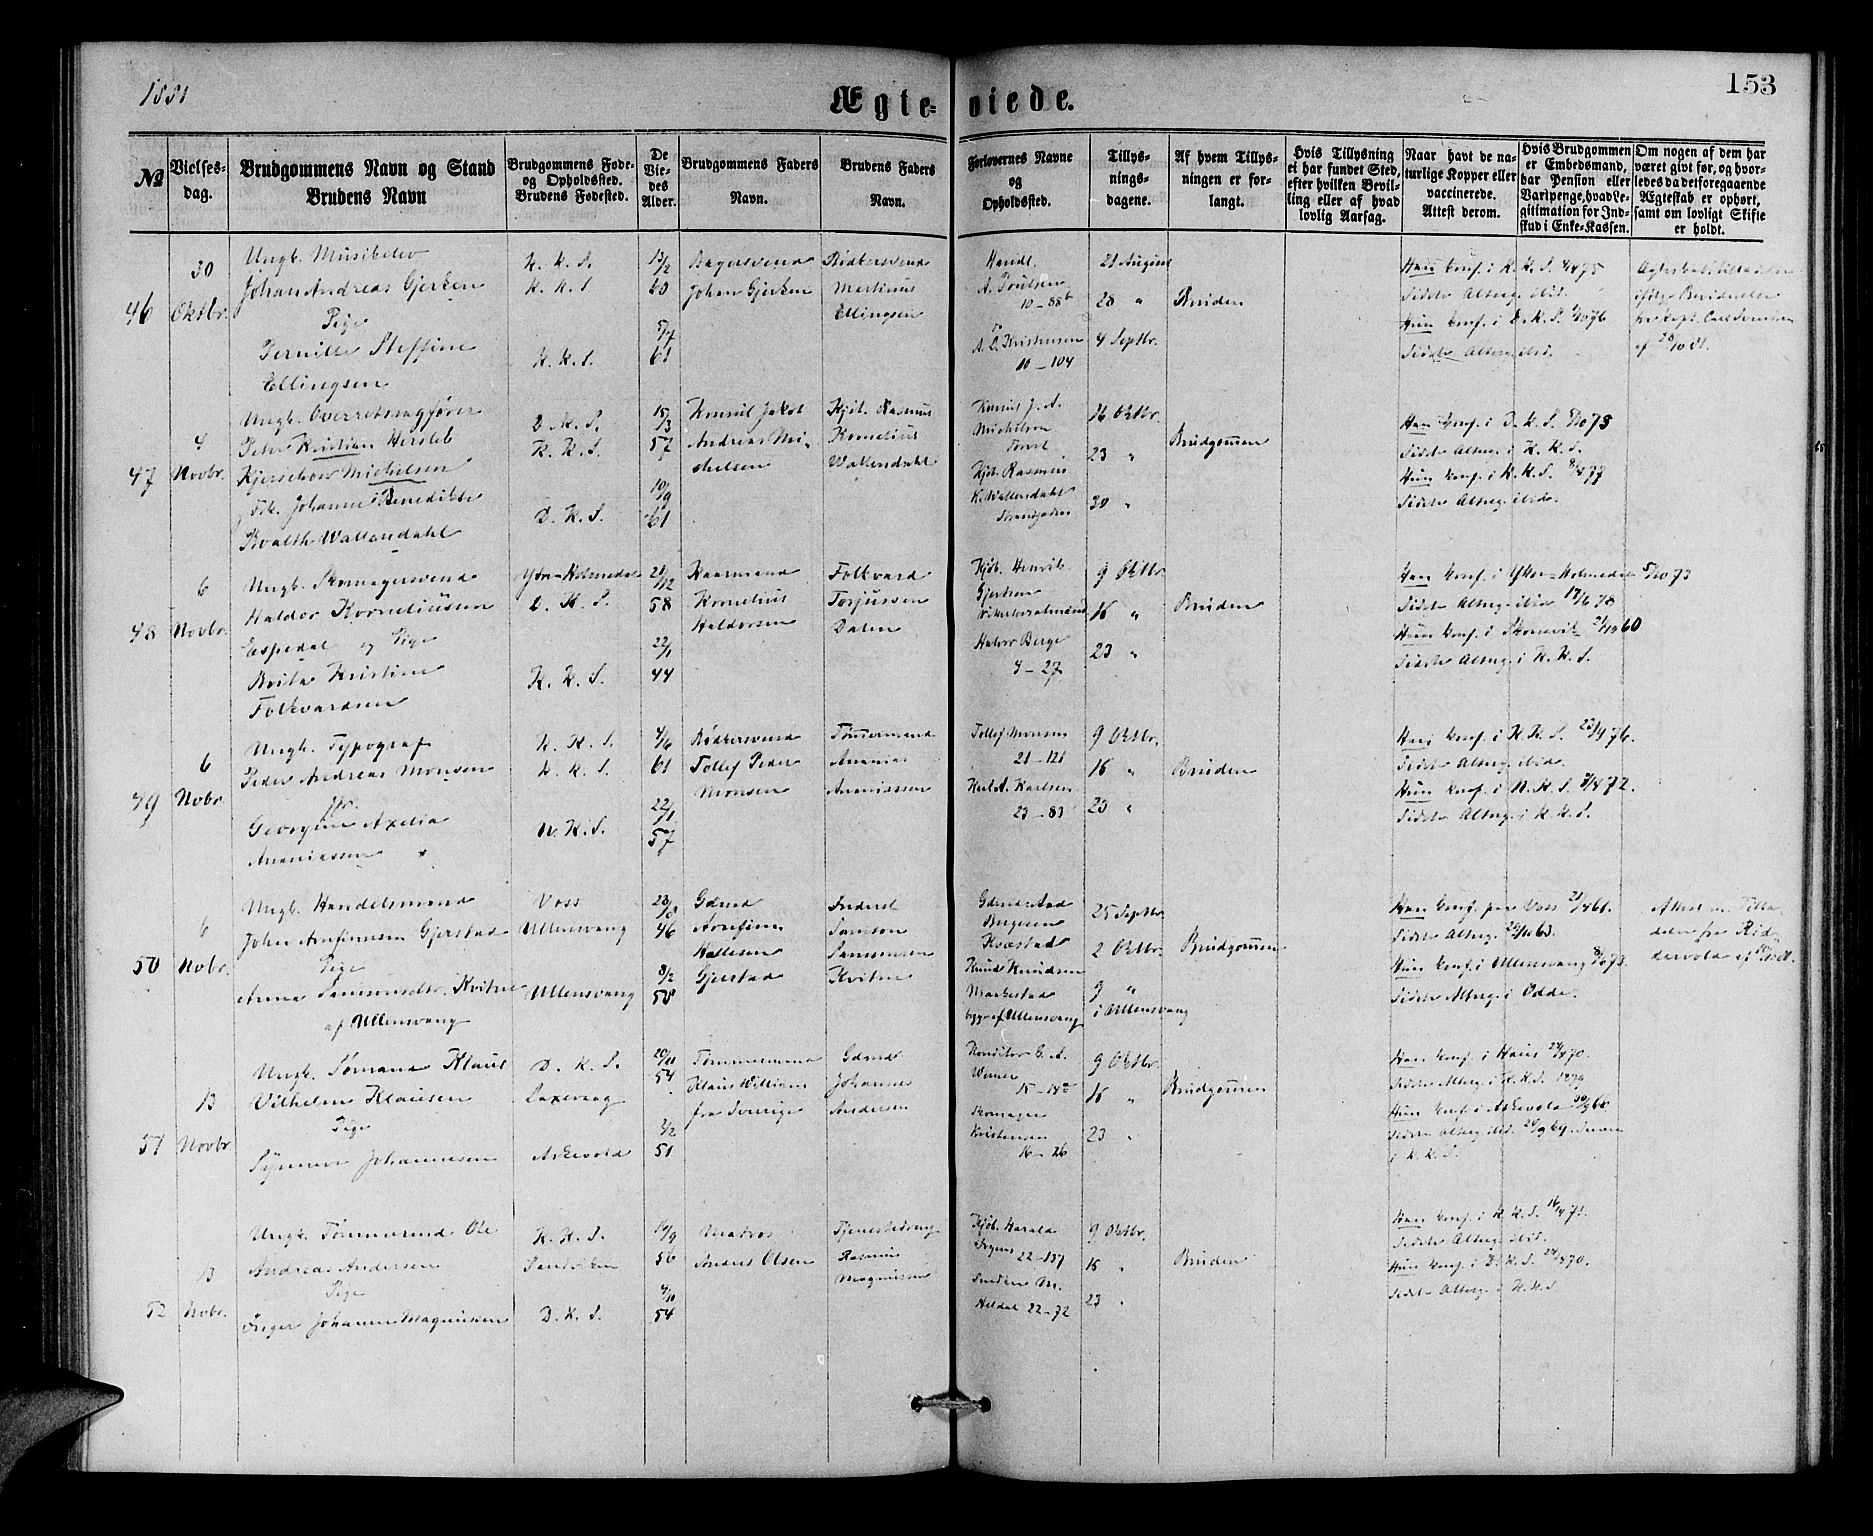 1881
Ægte-
viede.
153
№
Vielses-
dag.
Brudgommens Navn og Stand
Brudens Navn
Brudgommens Føde-
og Opholdssted.
Brudens Fødested.
De
Vie-
des
Alder.
Brudgommens Faders
Navn.
Brudens Faders
Navn.
Forlovernes Navne
og
Opholdssted.
Tillys-
nings-
dagene.
Af hvem Tillys-
ningen er for-
langt.
Hvis Tillysning
ei har fundet Sted,
efter hvilken Bevil-
ling eller af hvad
lovlig Aarsag.
Naar havt de na-
turlige Kopper eller
vaccinerede.
Attest derom.
Hvis Brudgommen
er Embedsmand,
har Pension eller
Varipenge, hvad Le-
gitimation for Ind-
skud i Enke-Kassen.
Om nogen af dem har
været givt før, og hvor-
ledes da det foregaaende
Ægteskab er ophørt,
samt om lovligt Skifte
er holdt.
46
30
Oktbr.
Ungk. Musikelev
Johan Andreas Gjerken
Pige
Pernille Steffine
Ellingsen
K. K. S.
K. K. S.
K. K. S.
13/2
60
5/7
61
Bagersvend
Johan Gjerken
Bødkersvend
Martinus
Ellingsen
Handl.
A. Poulsen
10 – 88 b
10 – 104
21 August
28 "
4 Septbr.
Bruden
Han konf. i K. K. S. 4/4 75
Sidste Altrg. ibid.
Hun konf. i D. K. S. 1/10 76
Sidste Altrg. ibid.
47
4
Novbr.
Ungk. Overretssagfører
Peter Kristian Hersleb
Kjerschow Michelsen
Frk. Johanne Benedikte
Kvalth Wallendahl
D. K. S.
K. K. S.
D. K. S.
15/3
57
10/9
61
Konsul Jakob
Andreas Mi-
chelsen
Kjøb. Rasmus
Kornelius
Wallendahl
Konsul J. A.
Michelsen
Torvet
Kjøb. Rasmus
K. Wallendahl
Strandgaden
16 Oktbr.
23 "
30 "
Brudgommen
Han konf. i D. K. S. 5/10 73
Sidste Altrg. i K. K. S.
Hun konf. i K. K. S. 8/4 77
Sidste Altrg. ibid.
48
6
Novbr.
Ungk. Skomagersvend
Haldor Korneliussen
Espedal og Pige
Brita Kristine
Folkvardsen
Ytre-Holmedal
D. K. S.
K. K. S.
21/12
58
22/1
44
Haarmand
Kornelius
Haldorsen
Folkvard
Torjussen
Dalen
Kjøb. Henrik
Gjertsen
Halvor Berge
4 – 27
9 Oktbr.
16 "
23 "
Bruden
Han konf. i Ytre-Holmedal 5/10 73
Sidste Altrg. ibid 17/6 78
Hun konf. i Skonevik 21/10 60
Sidste Altrg. i K. K. S.
49
6
Nobr.
Ungk. Typograf
Peder Andreas Monsen
Jfr.
Georgine Axelia
Ananiassen
K. K. S.
K. K. S.
N. K. S.
4/6
61
22/1
57
Bødkersvend
Tollef Peder
Monsen
Tømmermand
Ananias
Ananiassen
Tollef Monsen
21 – 121
Karl A. Karlsen
23 – 83
9 Oktbr.
16 "
23 "
Bruden
Han konf. i K. K. S. 23/4 76.
Sidste Altrg. ibid.
Hun konf. i N. K. S. 7/4 72.
Sidste Altrg. i K. K. S.
50
6
Nobr.
Ungk. Handelsmand
John Arnfinnsen Gjerstad
Pige
Anna Samsonsdtr. Kvitne
af Ullensvang
Voss
Ullensvang
Ullensvang
23/8
46
8/2
58
Gdmd
Arnfinn
Hallesen
Gjerstad
Inderst
Samson
Samsonsen
Kvitne
Gdmd. Aad
Bergesen
Kvæstad
Knud Knudsen
Maakestad
begge af Ullensvang
25 Septbr.
2 Oktbr.
9 "
i Ullensvang
Brudgommen
Han konf. paa Voss 21/4 61.
Sidste Altrg. 25/10 63.
Hun konf. i Ullensvang 5/10 73.
Sidste Altrg. i Odde.
51
13
Novbr.
Ungk. Sømand Klaus
Vilhelm Klausen
Pige
Synneve Johannesen
D. K. S.
Laxevaag
Askevold
20/11
54
2/2
51
Tømmermand
Klaus William
fra Sverige
Gdmd
Johannes
Andersen
Konditor C. A.
Werner
Skomager
Kristensen
16 – 26
9 Oktbr.
16 "
23 "
Brudgommen
Han konf. i Haus 24/4 70.
Sidste Altrg. i K. K. S. 1879
Hun konf. i Askevold 30/9 66
Sidste Altrg. ibid. 26/9 69. Senere
i K. K. S.
52
13
Nobr.
Ungk. Tømmermd Ole
Andreas Andersen
Pige
Inger Johanne Magnussen
K. K. S.
Sandviken
D. K. S.
14/9
56
4/10
54
Matros
Andres Olsen
Tjenestedreng
Rasmus
Magnussen
Kjøb. Harald
Irgens 22 – 137
Snedker M.
Heldal 22 – 72
9 Oktbr.
16 "
23 "
Bruden
Han konf. i K. K. S. 16/4 71.
Sidste Altrg. ibid.
Hun konf. i D. K. S. 24/4 70.
Sidste Altrg. i K. K. S.